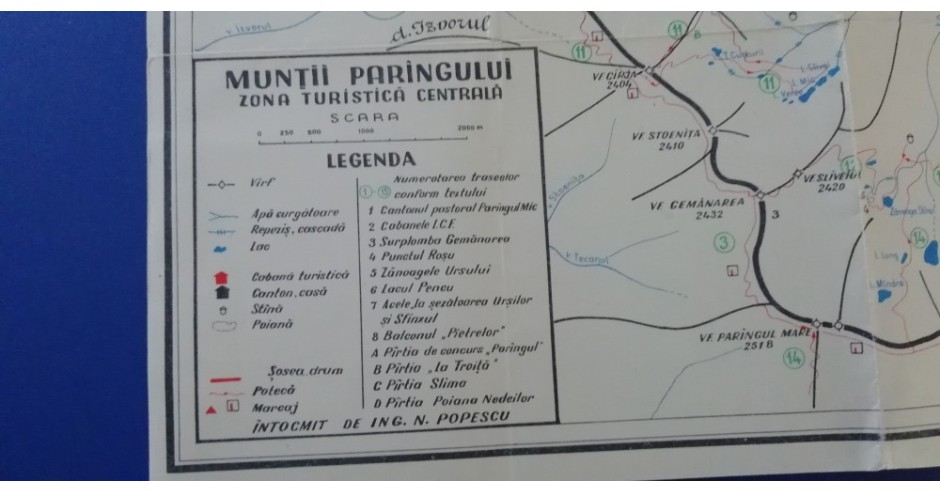 v. Izvorul
d. Izvorul
MUNȚII PARÎNGULUI
ZONA TURISTICĂ CENTRALĂ
SCARA
0 250 500 1000 2000 m
LEGENDA
Vîrf
Apă curgătoare
Repeziș, cascadă
Lac
Cabană turistică
Canton, casă
Stînă
Poiană
Șosea, drum
Potecă
Marcaj
Numerotarea traseelor
conform textului
1 Cantonul pastoral Parîngul Mic
2 Cabanele I.C.F.
3 Surplomba Gemănarea
4 Punctul Roșu
5 Zănoagele Ursului
6 Lacul Pencu
7 Acele, la șezătoarea Urșilor
și Sfinxul
8 Balconul „Pietrelor"
A Pîrtia de concurs „Parîngul"
B Pîrtia „la Troiță"
C Pîrtia Slima
D Pîrtia Poiana Nedeilor
ÎNTOCMIT DE ING. N. POPESCU
11
11
B
VF. CÎRJA
2404
11
VF. STOENIȚA
2410
VF. SLIVEIUL
2420
VF. GEMĂNAREA
2432
3
3
v. Stoenița
L. Lung
L. Mîndra
14
VF. PARÎNGUL MARE
2518
14